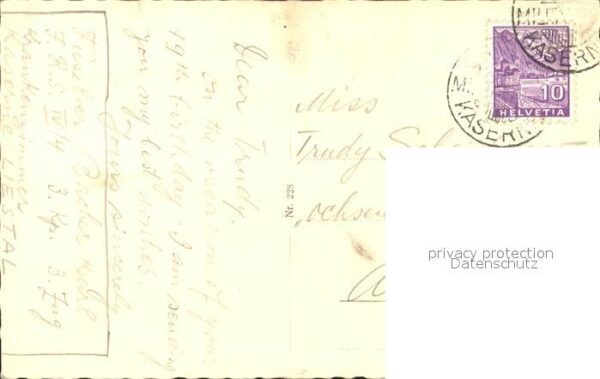 Dear Trudy,
on the occasion of your
19th birthday I am sending
you my best wishes.
Yours sincerely
Füsilier Karl
I.R.S. IV/4 3. Kp. 3. Zug
Krankenzimmer
Kaserne LIESTAL
Nr. 228
Miss
Trudy
„Ochsen
MILIT
KASERN
MI
KASERN
10
HELVETIA
privacy protection
Datenschutz